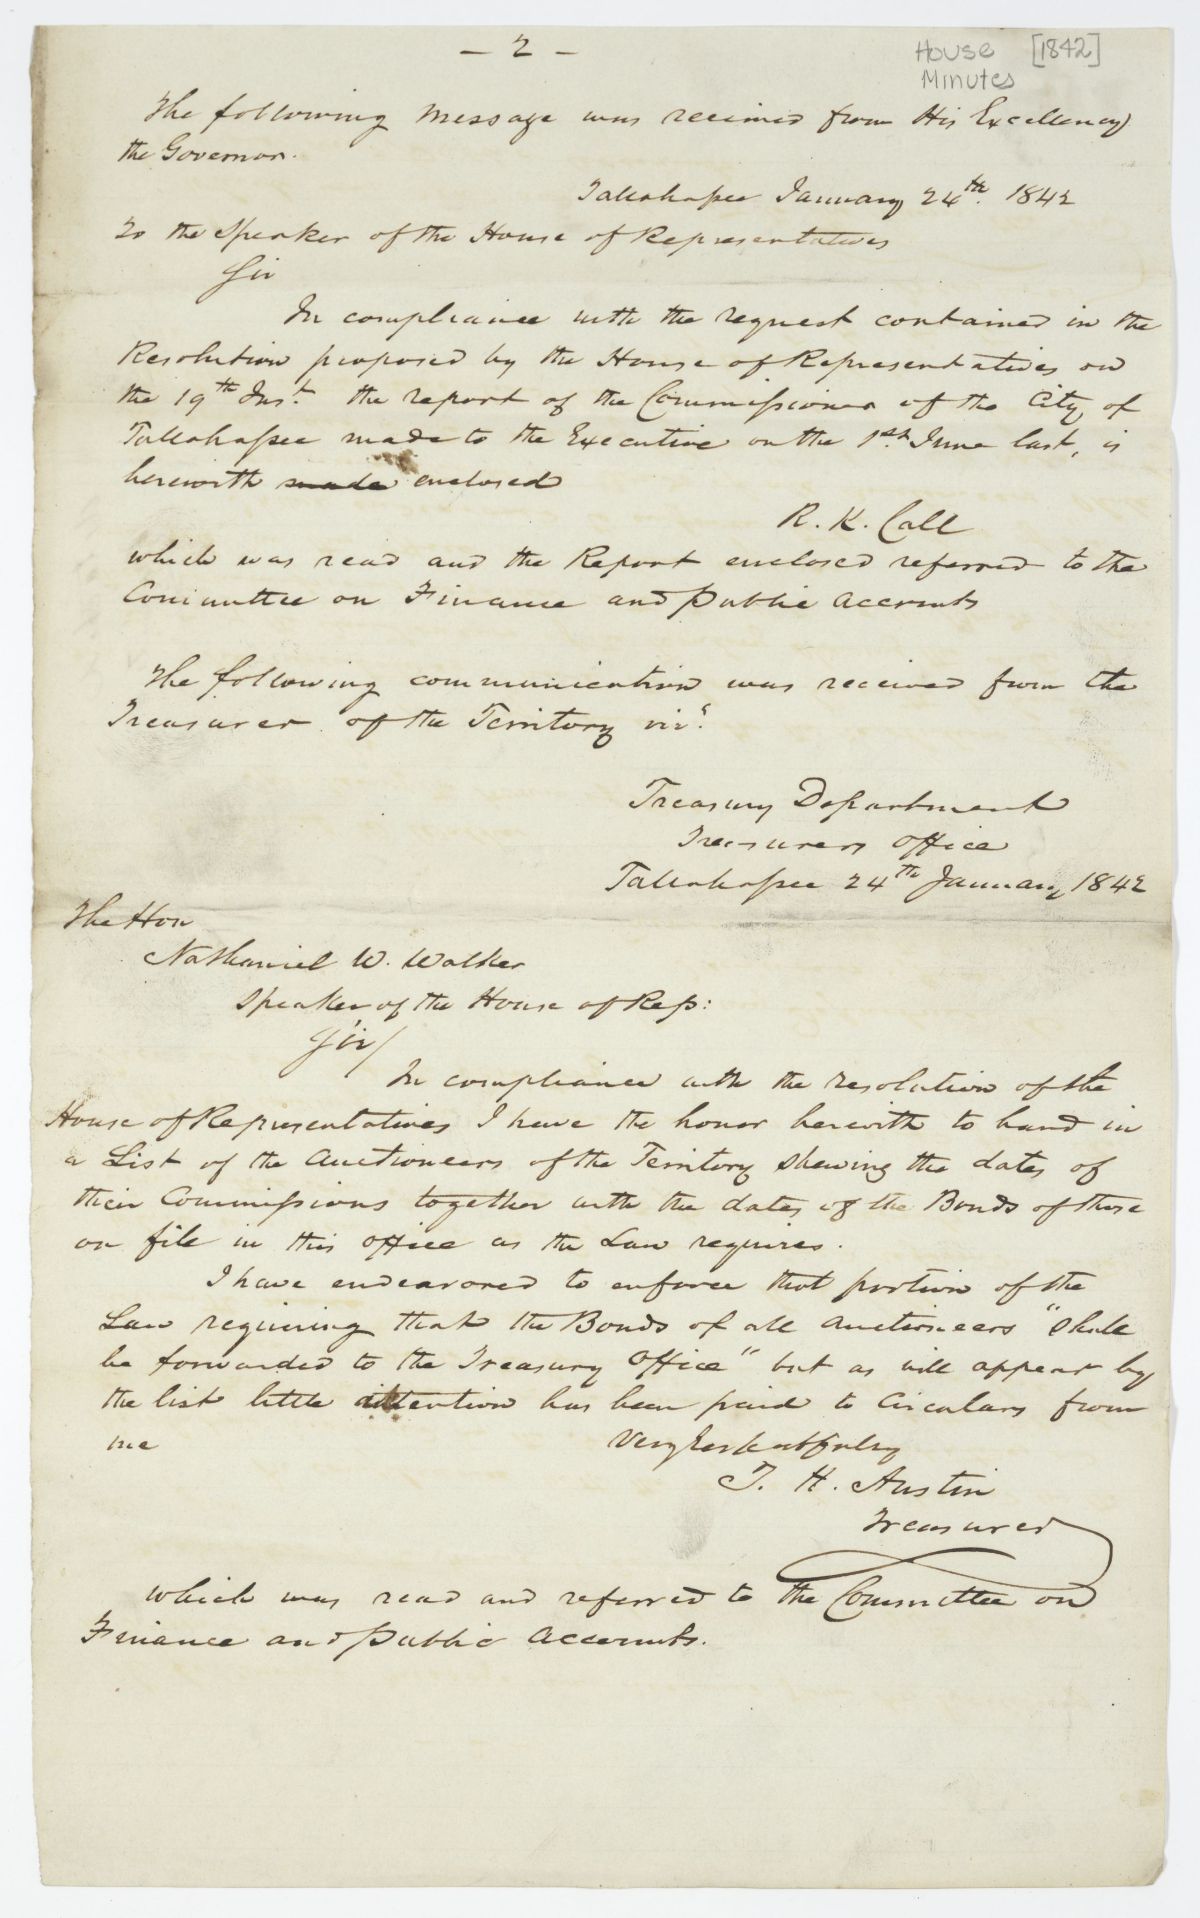 - 2 -
House [1842]
Minutes
The following message was received from His Excellency
the Governor.
Tallahassee January 24th. 1842
To the Speaker of the House of Representatives
Sir
In compliance with the request contained in the
Resolution proposed by the House of Representatives on
the 19th Inst. the report of the Commissioner of the City of
Tallahassee made to the Executive on the 1st. June last, is
herewith made enclosed
R. K. Call
which was read and the Report enclosed referred to the
Committee on Finance and Public Accounts
The following communication was received from the
Treasurer of the Territory viz:
Treasury Department
Treasurers Office
Tallahassee 24th January 1842
The Hon
Nathaniel W. Walker
Speaker of the House of Rep:
Sir/
In compliance with the resolution of the
House of Representatives I have the honor herewith to hand in
a List of the Auctioneers of the Territory shewing the dates of
their Commissions together with the dates of the Bonds of those
on file in this office as the Law requires.
I have endeavored to enforce that portion of the
Law requiring that the Bonds of all Auctioneers "shall
be forwarded to the Treasury Office" but as will appear by
the list little attention has been paid to Circulars from
me
Very Respectfully
T. H. Austin
Treasurer
which was read and referred to the Committee on
Finance and Public Accounts.